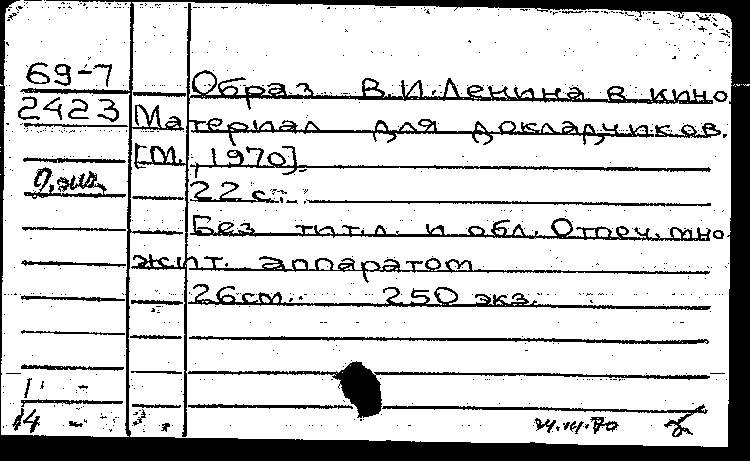 69-7
2423
Образ В.И.Ленина в кино
Материал для докладчиков.
[М., 1970].
22 с.
Без тит.л. и обл. Отпеч. мно
жит. аппаратом
26см. 250 экз.
14